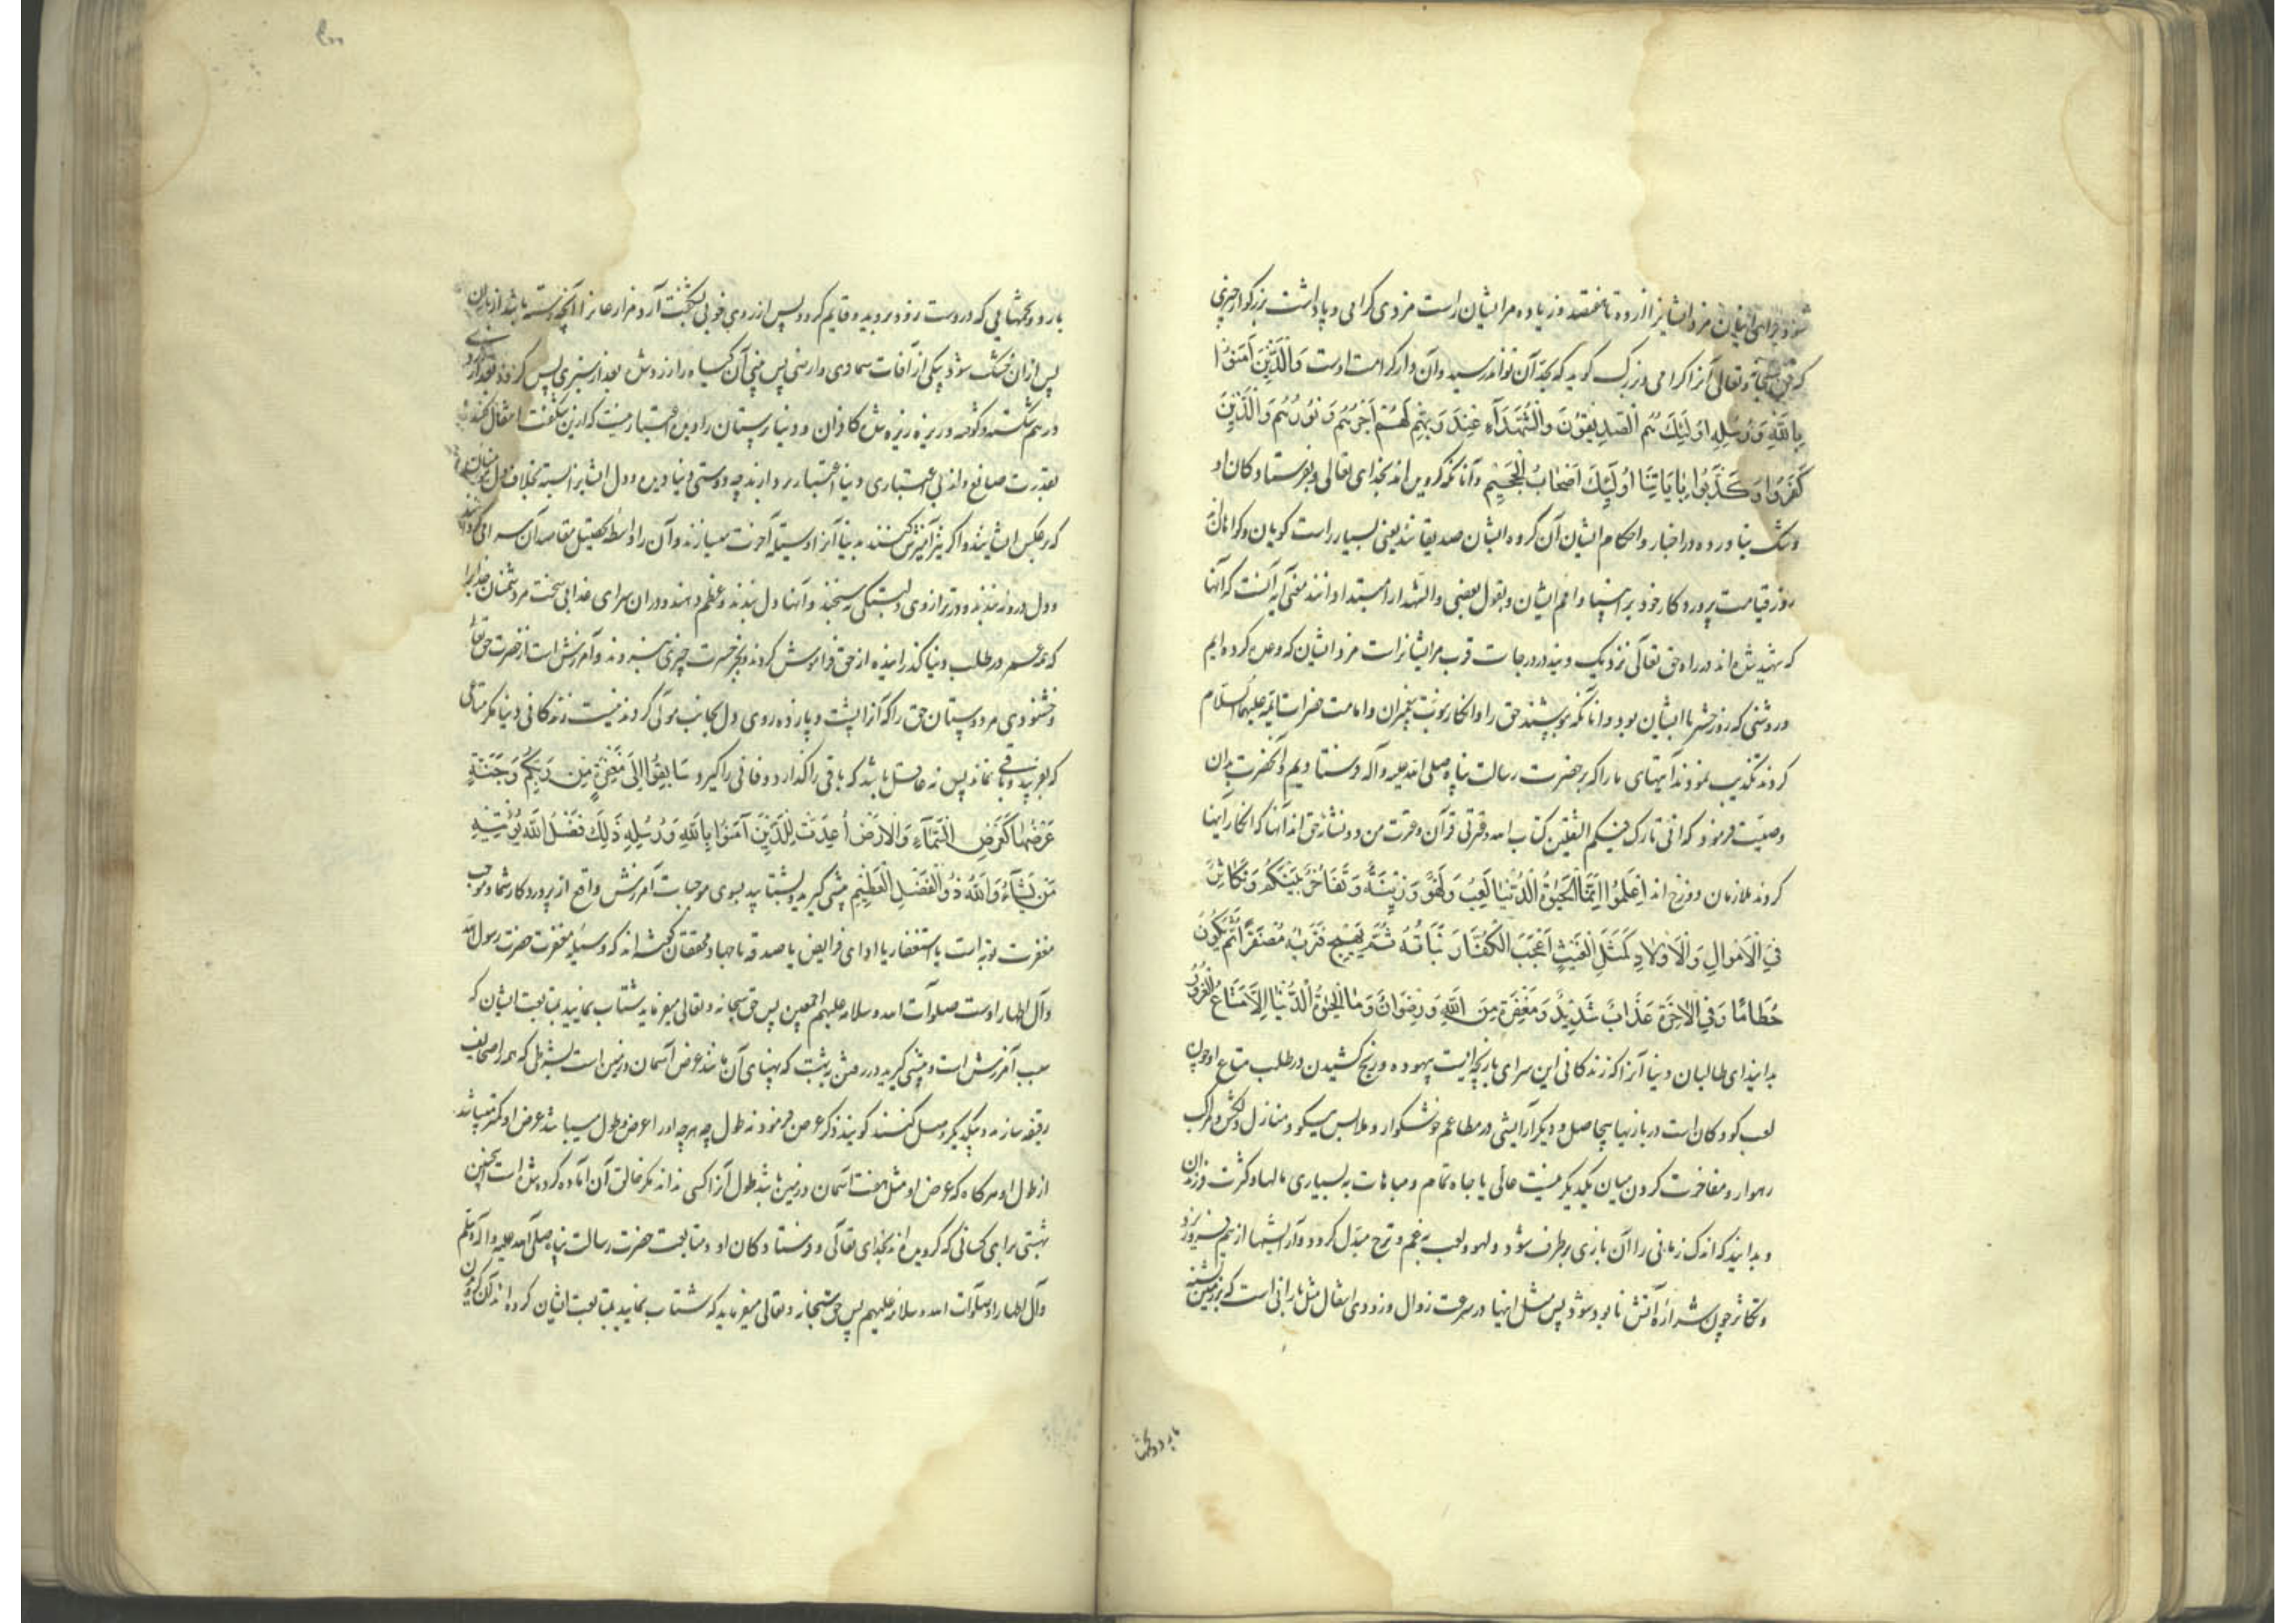 شود برای ایشان مزد ایشان از ده تا هفتصد و زیاده مر ایشان راست مزدی کرامی و پاداشت بزرکوار چیزی
که حق سبحانه و تعالی آنرا کرامی و بزرک کوید که بحد آن تواند رسید و آن دار کرامت اوست وَالَّذِينَ آمَنُوا
بِاللَّهِ وَرُسُلِهِ أُولَئِكَ هُمُ الصِّدِّيقُونَ وَالشُّهَدَآءُ عِنْدَ رَبِّهِمْ لَهُمْ أَجْرُهُمْ وَنُورُهُمْ وَالَّذِينَ
كَفَرُوا وَكَذَّبُوا بِايَاتِنَا أُولَئِكَ أَصْحَابُ الْجَحِيمِ و آنانکه کرویده اند بخدای تعالی و بفرستادکان او
و شک نیاورده در اخبار و احکام ایشان آن کروه ایشان صدیقانند یعنی بسیار راست کویان و کواهانند
روز قیامت پرورد کار خود بر انبیا و امم ایشان و بقول بعضی والشهدا را مبتدا دانند معنی آیه آنست که آنها
که شهید شده اند در راه حق تعالی نزدیک ویند در درجات قرب مر ایشانراست مزد ایشان که وعده کرده ایم
و روشنی که روز حشر با ایشان بود و انانکه بپوشند حق را و انکار نبوت پیغمبران و امامت حضرات ائمه علیهم السلام
کردند و تکذیب نمودند آیتهای ما را که بر حضرت رسالت پناه صلی الله علیه و آله فرستادیم و آنحضرت بدان
وصیت فرمود که انی تارک فیکم الثقلین کتاب الله و عترتی قرآن و عترت من دو نشانه حق اند آنها که انکار اینها
کردند ملازمان دوزخ اند اِعْلَمُوا اِنَّمَا الْحَيٰوةُ الدُّنْيَا لَعِبٌ وَلَهْوٌ وَزِينَةٌ وَتَفَاخُرٌ بَيْنَكُمْ وَتَكَاثُرٌ
فِي الْاَمْوَالِ وَالْاَوْلَادِ كَمَثَلِ غَيْثٍ اَعْجَبَ الْكُفَّارَ نَبَاتُهُ ثُمَّ يَهِيجُ فَتَرٰيهُ مُصْفَرًّا ثُمَّ يَكُونُ
حُطَامًا وَفِي الْاٰخِرَةِ عَذَابٌ شَدِيدٌ وَمَغْفِرَةٌ مِنَ اللَّهِ وَرِضْوَانٌ وَمَا الْحَيٰوةُ الدُّنْيَا اِلَّا مَتَاعُ الْغُرُورِ
بدانید ای طالبان دنیا آنرا که زندکانی این سرای بازیچه ایست بیهوده و رنج کشیدن در طلب متاع او چون
لعب کودکان است در بازیها بیحاصل و دیکر آرایشی در مطاعم خوشکوار و ملابس نیکو و منازل دلکش و مراکب
رهوار و مفاخرت کردن میان یکدیکر بنسبت عالی یا جاه تمام و مباهات به بسیاری مالها و کثرت فرزندان
و بدانید که اندک زمانی را آن بازی برطرف شود و لهو و لعب به غم و ترح مبدل کردد و آرایشها از هم فرو ریزد
و تکاثر چون شراره آتش نابود شود پس مثل اینها در سرعت زوال و زودی انتقال مثل بارانی است که بر زمین تشنه
بارد و تخمها
بارد و تخمهایی که در دست رفته بروید و قایم کردد پس از روی خوبی بشکفت آرد مزارعانرا آنچه رسته باشد از باران
پس از آن خشک شود بیکی از آفات سماوی و ارضی پس بینی آن کیاه را زرد شده بعد از سبزی پس کردد بعد از زردی
درهم شکسته و کوفته و ریزه ریزه شده کافران و دنیا پرستان را دیده اعتبار نیست که از این شکفت انتقال کنند
بقدرت صانع و از بی اعتباری دنیا اعتبار بردارند چه دوستی دنیا دیده و دل ایشانرا بسته بخلاف دل مؤمنان
که بر عکس ایشانند و اکر نیز آمیزش کنند بدنیا آنرا وسیله آخرت میسازند و آن را واسطه تحصیل مقاصد آن سرای کردانند
و دل درو نبندند و در ترازوی دلبستکی نسنجند و آنها دل بندند و عظم دهند و در آن سرای عذابی سخت مر دشمنان خدا را
که همه عمر در طلب دنیا کذرانیده از حق فراموش کردند و بجز حسرت چیزی نبردند و آمرزش است از حضرت حق تعالی
و خشنودی مر دوستان حق را که آنرا پشت و پا زده روی دل بجانب مولی کردند و نیست زندکانی دنیا مکر متاعی
که بفریبد و باقی نماند پس نه عاقل باشد که باقی را کذارد و فانی را کیرد سَابِقُوا اِلَى مَغْفِرَةٍ مِنْ رَبِّكُمْ وَجَنَّةٍ
عَرْضُهَا كَعَرْضِ السَّمَآءِ وَالْاَرْضِ أُعِدَّتْ لِلَّذِينَ آمَنُوا بِاللَّهِ وَرُسُلِهِ ذَلِكَ فَضْلُ اللَّهِ يُؤْتِيهِ
مَنْ يَشَآءُ وَاللَّهُ ذُو الْفَضْلِ الْعَظِيمِ پیشی کیرید و بشتابید بسوی موجبات آمرزش واقع از پروردکار شما و موجب
مغفرت توبه است یا استغفار یا ادای فرایض یا صدقه یا جهاد و محققان کفته اند که وسیله مغفرت حضرت رسول الله
و آل اطهار اوست صلوات الله و سلامه علیهم اجمعین پس حق سبحانه و تعالی میفرماید شتاب نمایید بمتابعت ایشان که
سبب آمرزش است و پیشی کیرید در رفتن به بهشت که پهنای آن مانند عرض آسمان و زمین است بشرطی که همه را صحایف
رقیقه سازند و بیکدیکر وصل کنند کویند ذکر عرض فرمود نه طول چه هر چه او را عرض و طول میباشد عرض او کمتر میباشد
از طول او هرکاه که عرض او مثل هفت آسمان و زمین باشد طول آنرا کسی نداند مکر خالق آن اماده کرده شده است چنین
بهشتی برای کسانی که کرویده اند بخدای تعالی و فرستادکان او و متابعت حضرت رسالت پناه صلی الله علیه و آله و سلم
و آل اطهار او صلوات الله و سلامه علیهم پس حق سبحانه و تعالی میفرماید که شتاب نمایید بمتابعت ایشان کرده اند